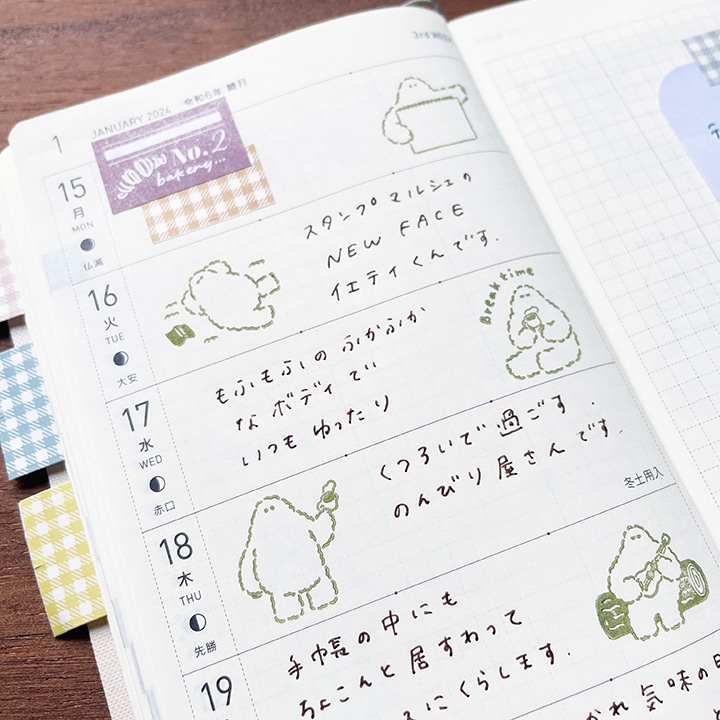 3rd WEEK
1 JANUARY 2024 令和6年 睦月
No.2
bakery...
15
月
MON
仏滅
スタンプマルシェの
NEW FACE
イエティくんです.
16
火
TUE
大安
Break time
もふもふの ふかふか
な ボディで
いつも ゆったり
17
水
WED
赤口
くつろいで 過ごす.
のんびり 屋さんです.
冬土用入
18
木
THU
先勝
手帳の 中にも
ちょこんと 居すわって
にくらします.
19
かれ 気味の